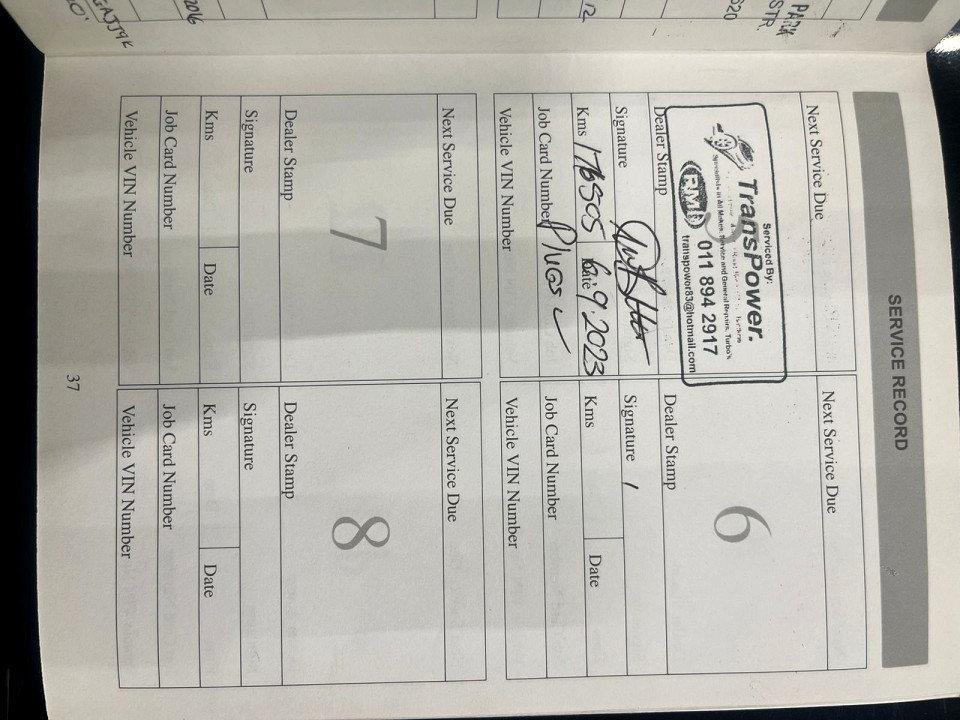 PARK
STR.
2016
12
SERVICE RECORD
Next Service Due
Serviced By:
TransPower.
Specialists in All Makes. Service and General Repairs. Turbo's
RMI
011 894 2917
transpower83@hotmail.com
Dealer Stamp
Signature
Kms 176505 Date 6.9.2023
Job Card Number Plugs ✓
Vehicle VIN Number
Next Service Due
6
Dealer Stamp
Signature
Kms Date
Job Card Number
Vehicle VIN Number
Next Service Due
7
Dealer Stamp
Signature
Kms Date
Job Card Number
Vehicle VIN Number
Next Service Due
8
Dealer Stamp
Signature
Kms Date
Job Card Number
Vehicle VIN Number
37